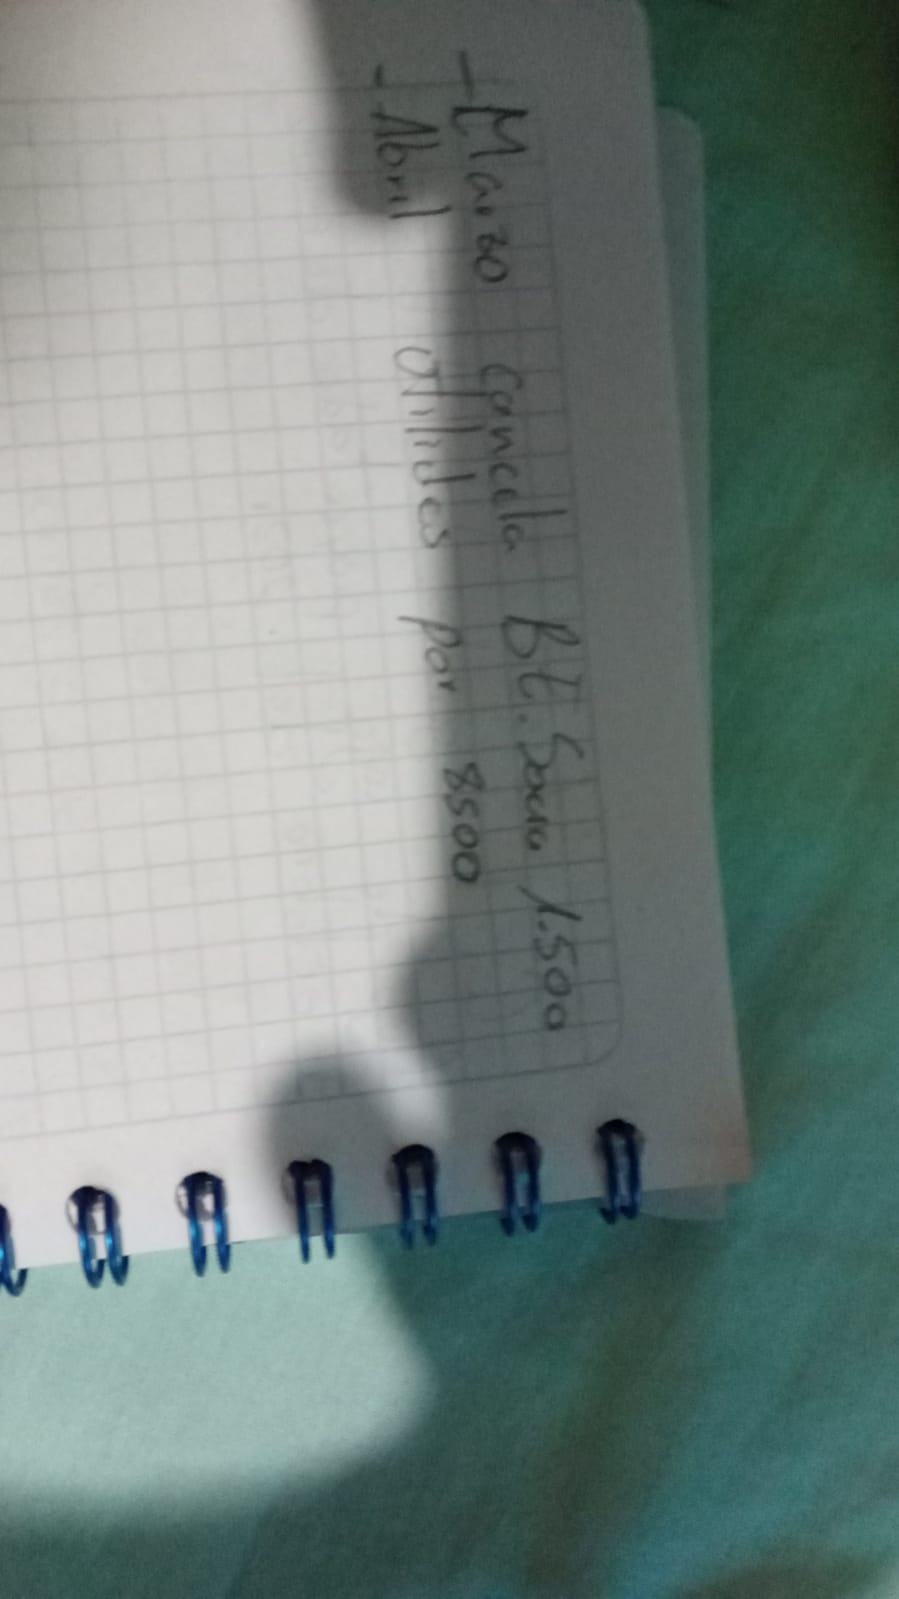 - Marzo Cancela Bt. Socia 1.500
- Abril Utilides por 8500